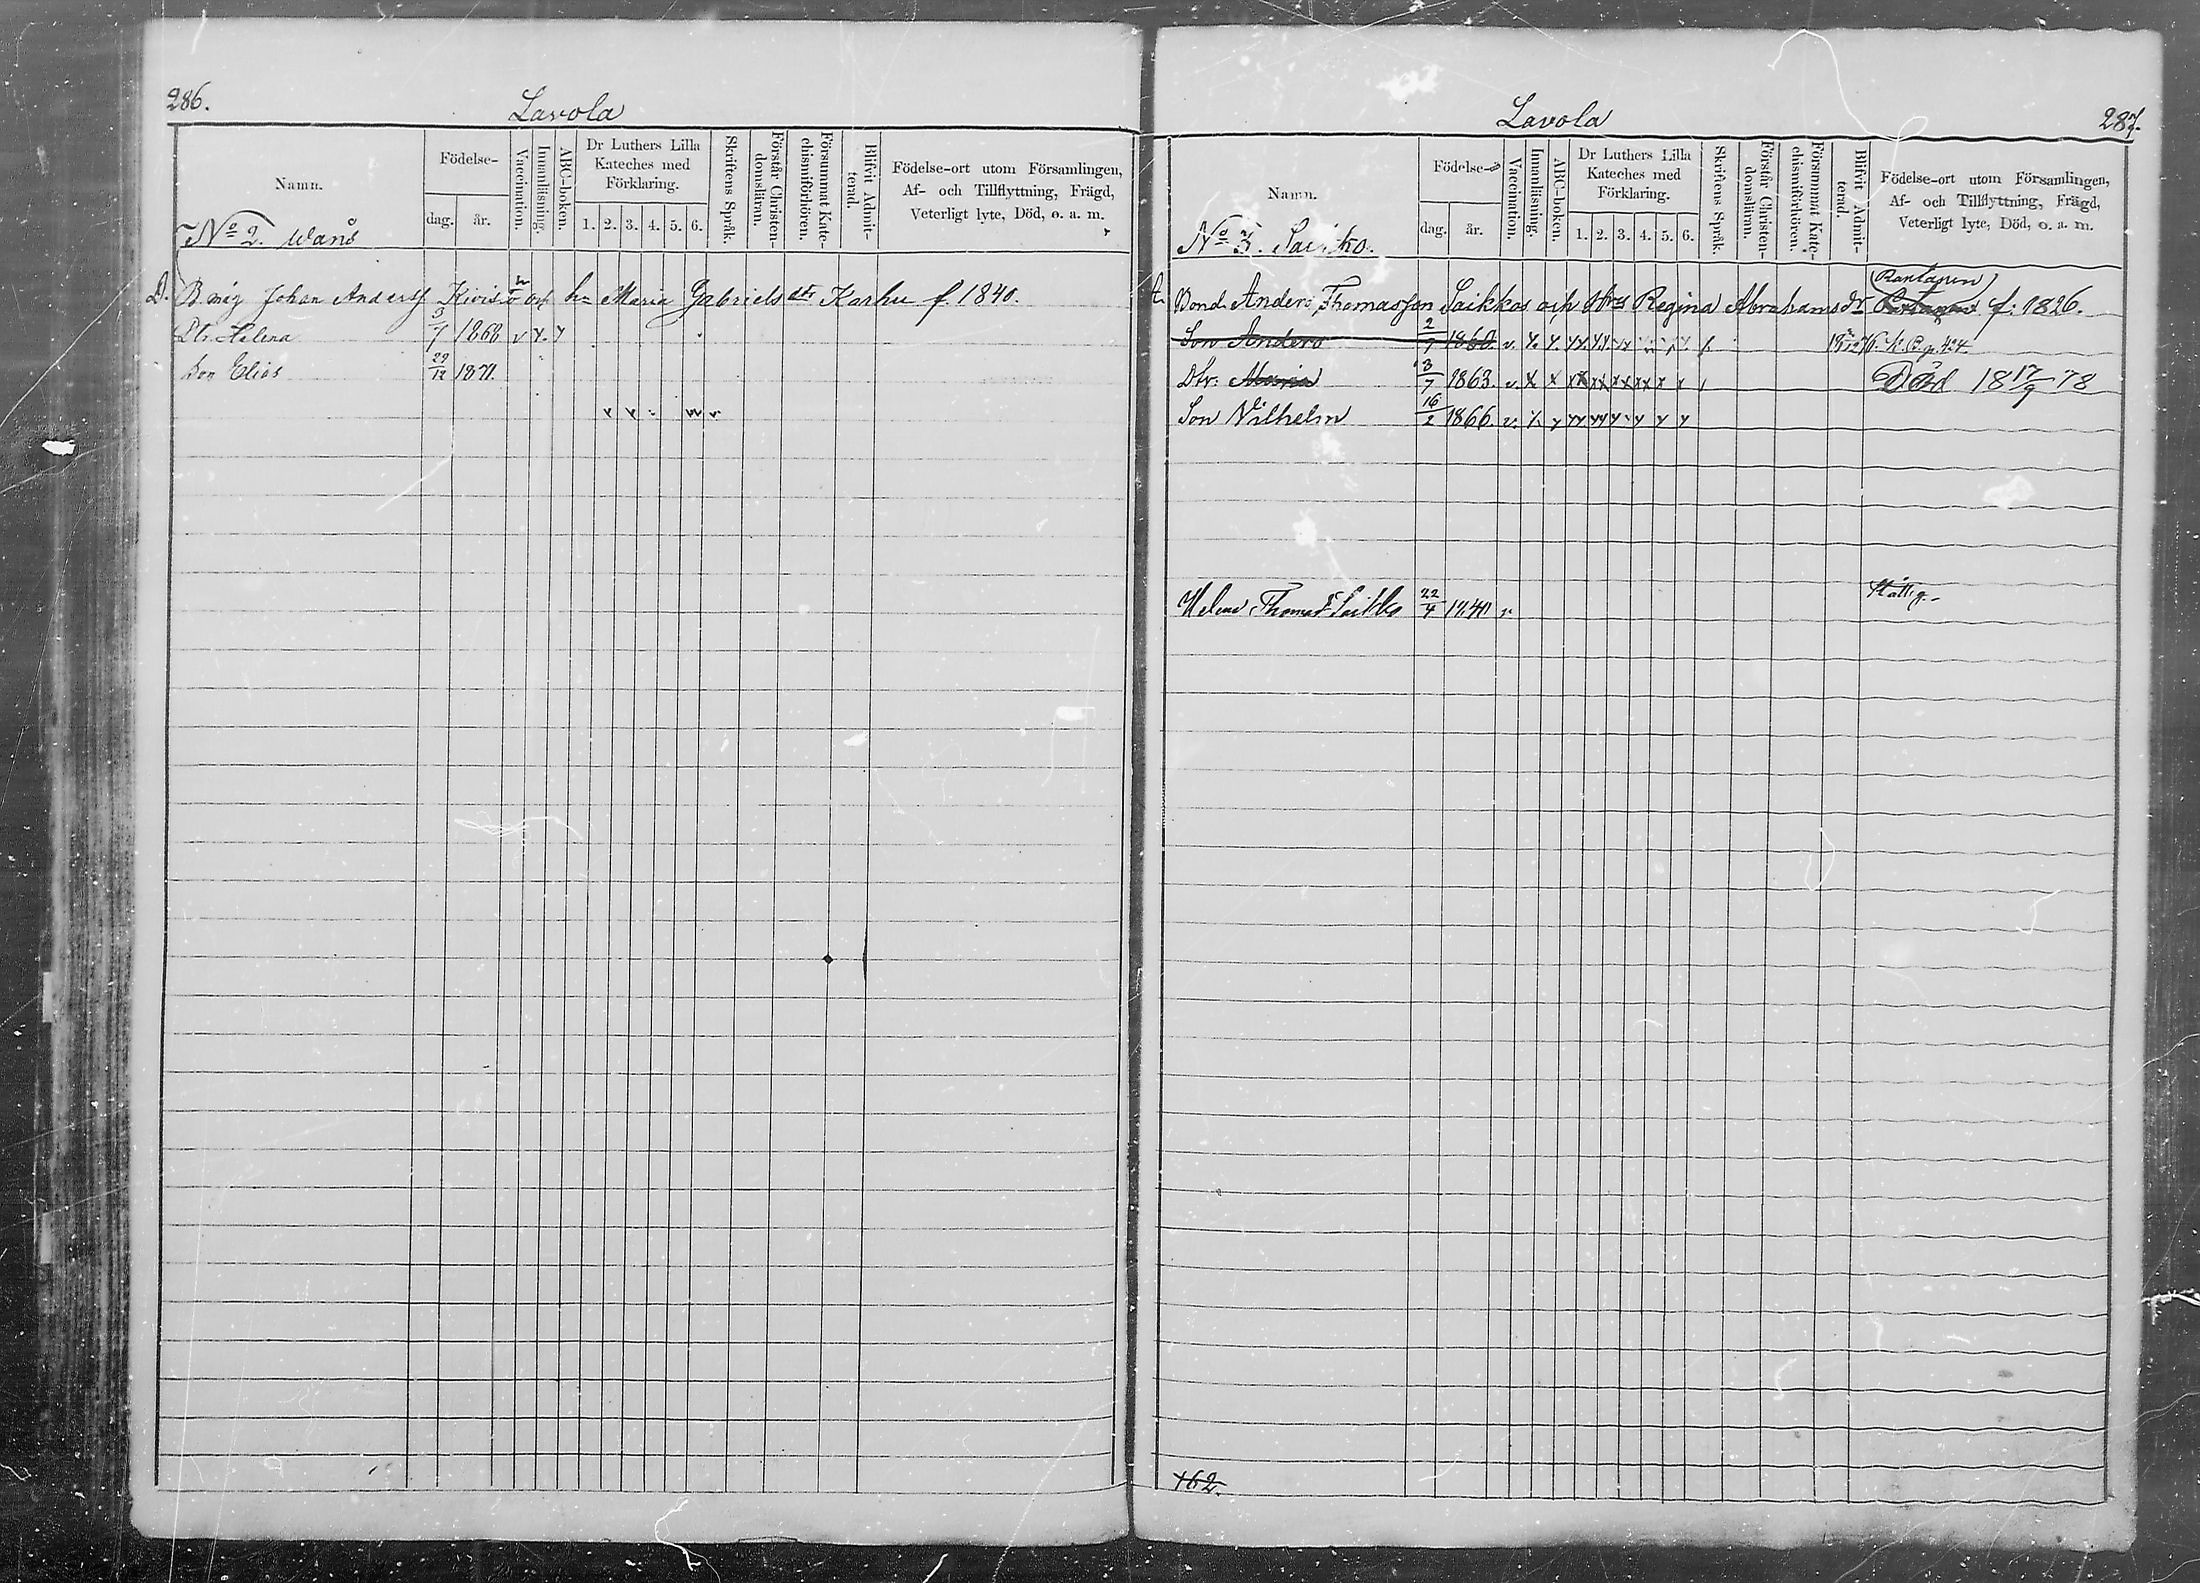 286.
Lavola
Namn.
Födelse-
dag.
år.
Vaccination.
Innanläsning.
ABC-boken.
Dr Luthers Lilla
Kateches med
Förklaring.
1. 2. 3. 4. 5. 6.
Skriftens Språk.
Förstår Christen-
domsläran.
Försummat Kate-
chismiförhören.
Blifvit Admit-
terad.
Födelse-ort utom Församlingen,
Af- och Tillflyttning, Frägd,
Veterligt lyte, Död, o. a. m.
No 2. Wanå
D. B. måg Johan Anders Kivistö och h. Maria Gabrielsdtr Karhu f. 1840.
Dtr. Helena 3/7 1868 v
Son Elias 29/12 1871.
Lavola
287.
Namn.
Födelse-
dag.
år.
Vaccination.
Innanläsning.
ABC-boken.
Dr Luthers Lilla
Kateches med
Förklaring.
1. 2. 3. 4. 5. 6.
Skriftens Språk.
Förstår Christen-
domsläran.
Försummat Kate-
chismiförhören.
Blifvit Admit-
terad.
Födelse-ort utom Församlingen,
Af- och Tillflyttning, Frägd,
Veterligt lyte, Död, o. a. m.
No 3. Saikko.
(Rantapiin)
Bond. Anders Thomasson Saikkos och Regina Abrahamsdr f. 1826.
Son Anders 2/7 1860. v.
Dtr. Maria 3/7 1863. v. Död 18 17/9 78
Son Vilhelm 16/2 1866. v.
Helena Thomasdr Saikko 22/4 1840 v
162.